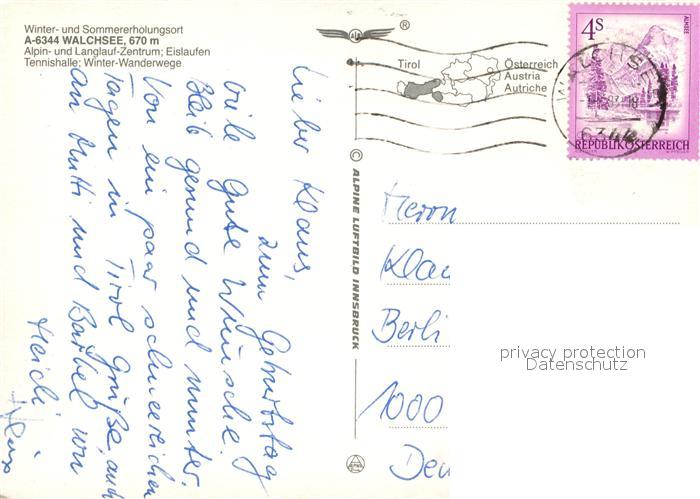 Winter- und Sommererholungsort
A-6344 WALCHSEE, 670 m
Alpin- und Langlauf-Zentrum; Eislaufen
Tennishalle; Winter-Wanderwege
®
Tirol
Österreich
Austria
Autriche
4S
ALMSEE
WALCHSEE
6344
REPUBLIK ÖSTERREICH
© ALPINE LUFTBILD INNSBRUCK
Lieber Klaus,
zum Geburtstag
viele Gute Wünsche.
Bleib gesund und munter.
Von ein paar schneereichen
Tagen in Tirol Grüße, auch
an Mutti und Bärbel von
Heidi
Herrn
Klau
Berli
1000
Deu
privacy protection
Datenschutz